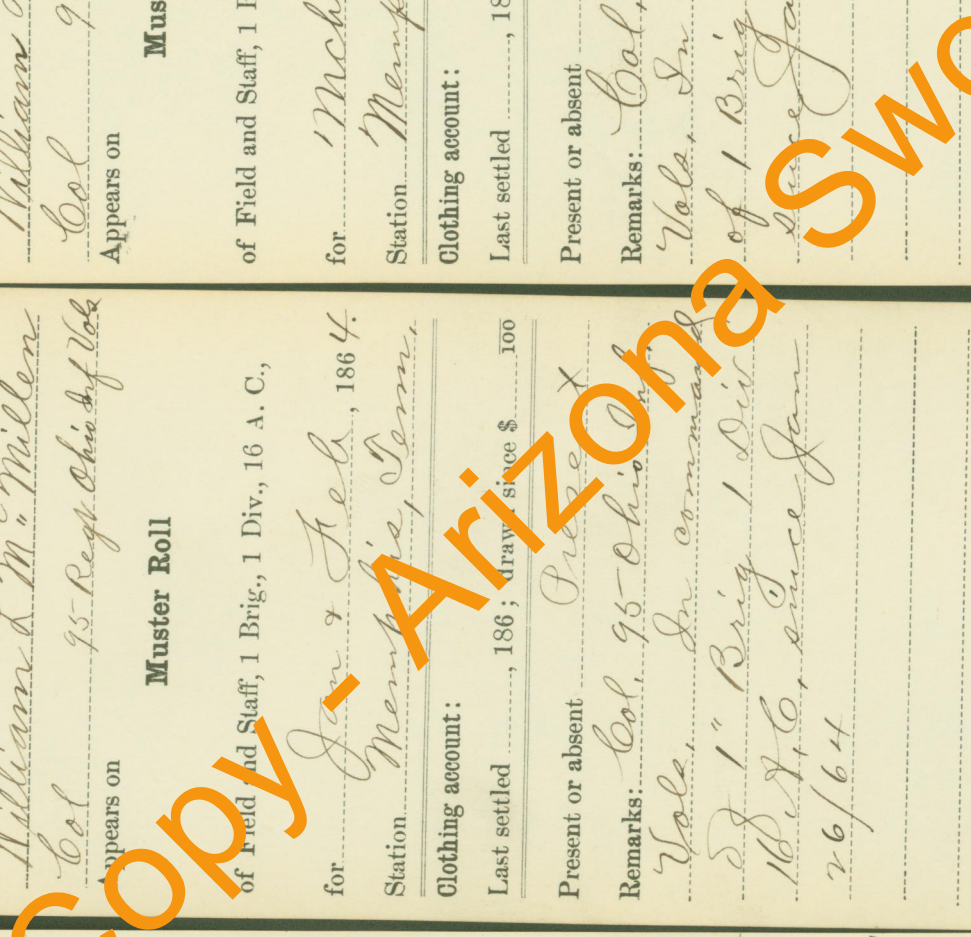 William L Mc Millen
Col 95 Regt Ohio Inf Vols
Appears on
Muster Roll
of Field and Staff, 1 Brig., 1 Div., 16 A. C.,
for Jan & Feb, 1864.
Station Memphis, Tenn,
Clothing account:
Last settled , 186 ; drawn since $ 100
Present or absent Present
Remarks: Col, 95 Ohio Inf
Vols. In command
of 1" Brig 1 Div
16 A.C, since Jan
26/64
William
Col 9
Appears on
Mus
of Field and Staff, 1
for Mch
Station Memp
Clothing account:
Last settled , 18
Present or absent
Remarks: Col,
Vols, In
of 1 Brig
since Ja
Copy - Arizona Swo